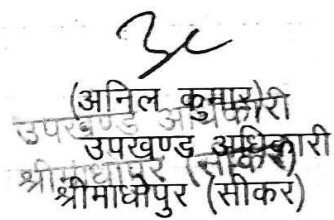 (अनिल कुमार)
उपखण्ड अधिकारी
उपखण्ड अधिकारी
श्रीमाधोपुर (सीकर)
श्रीमाधोपुर (सीकर)